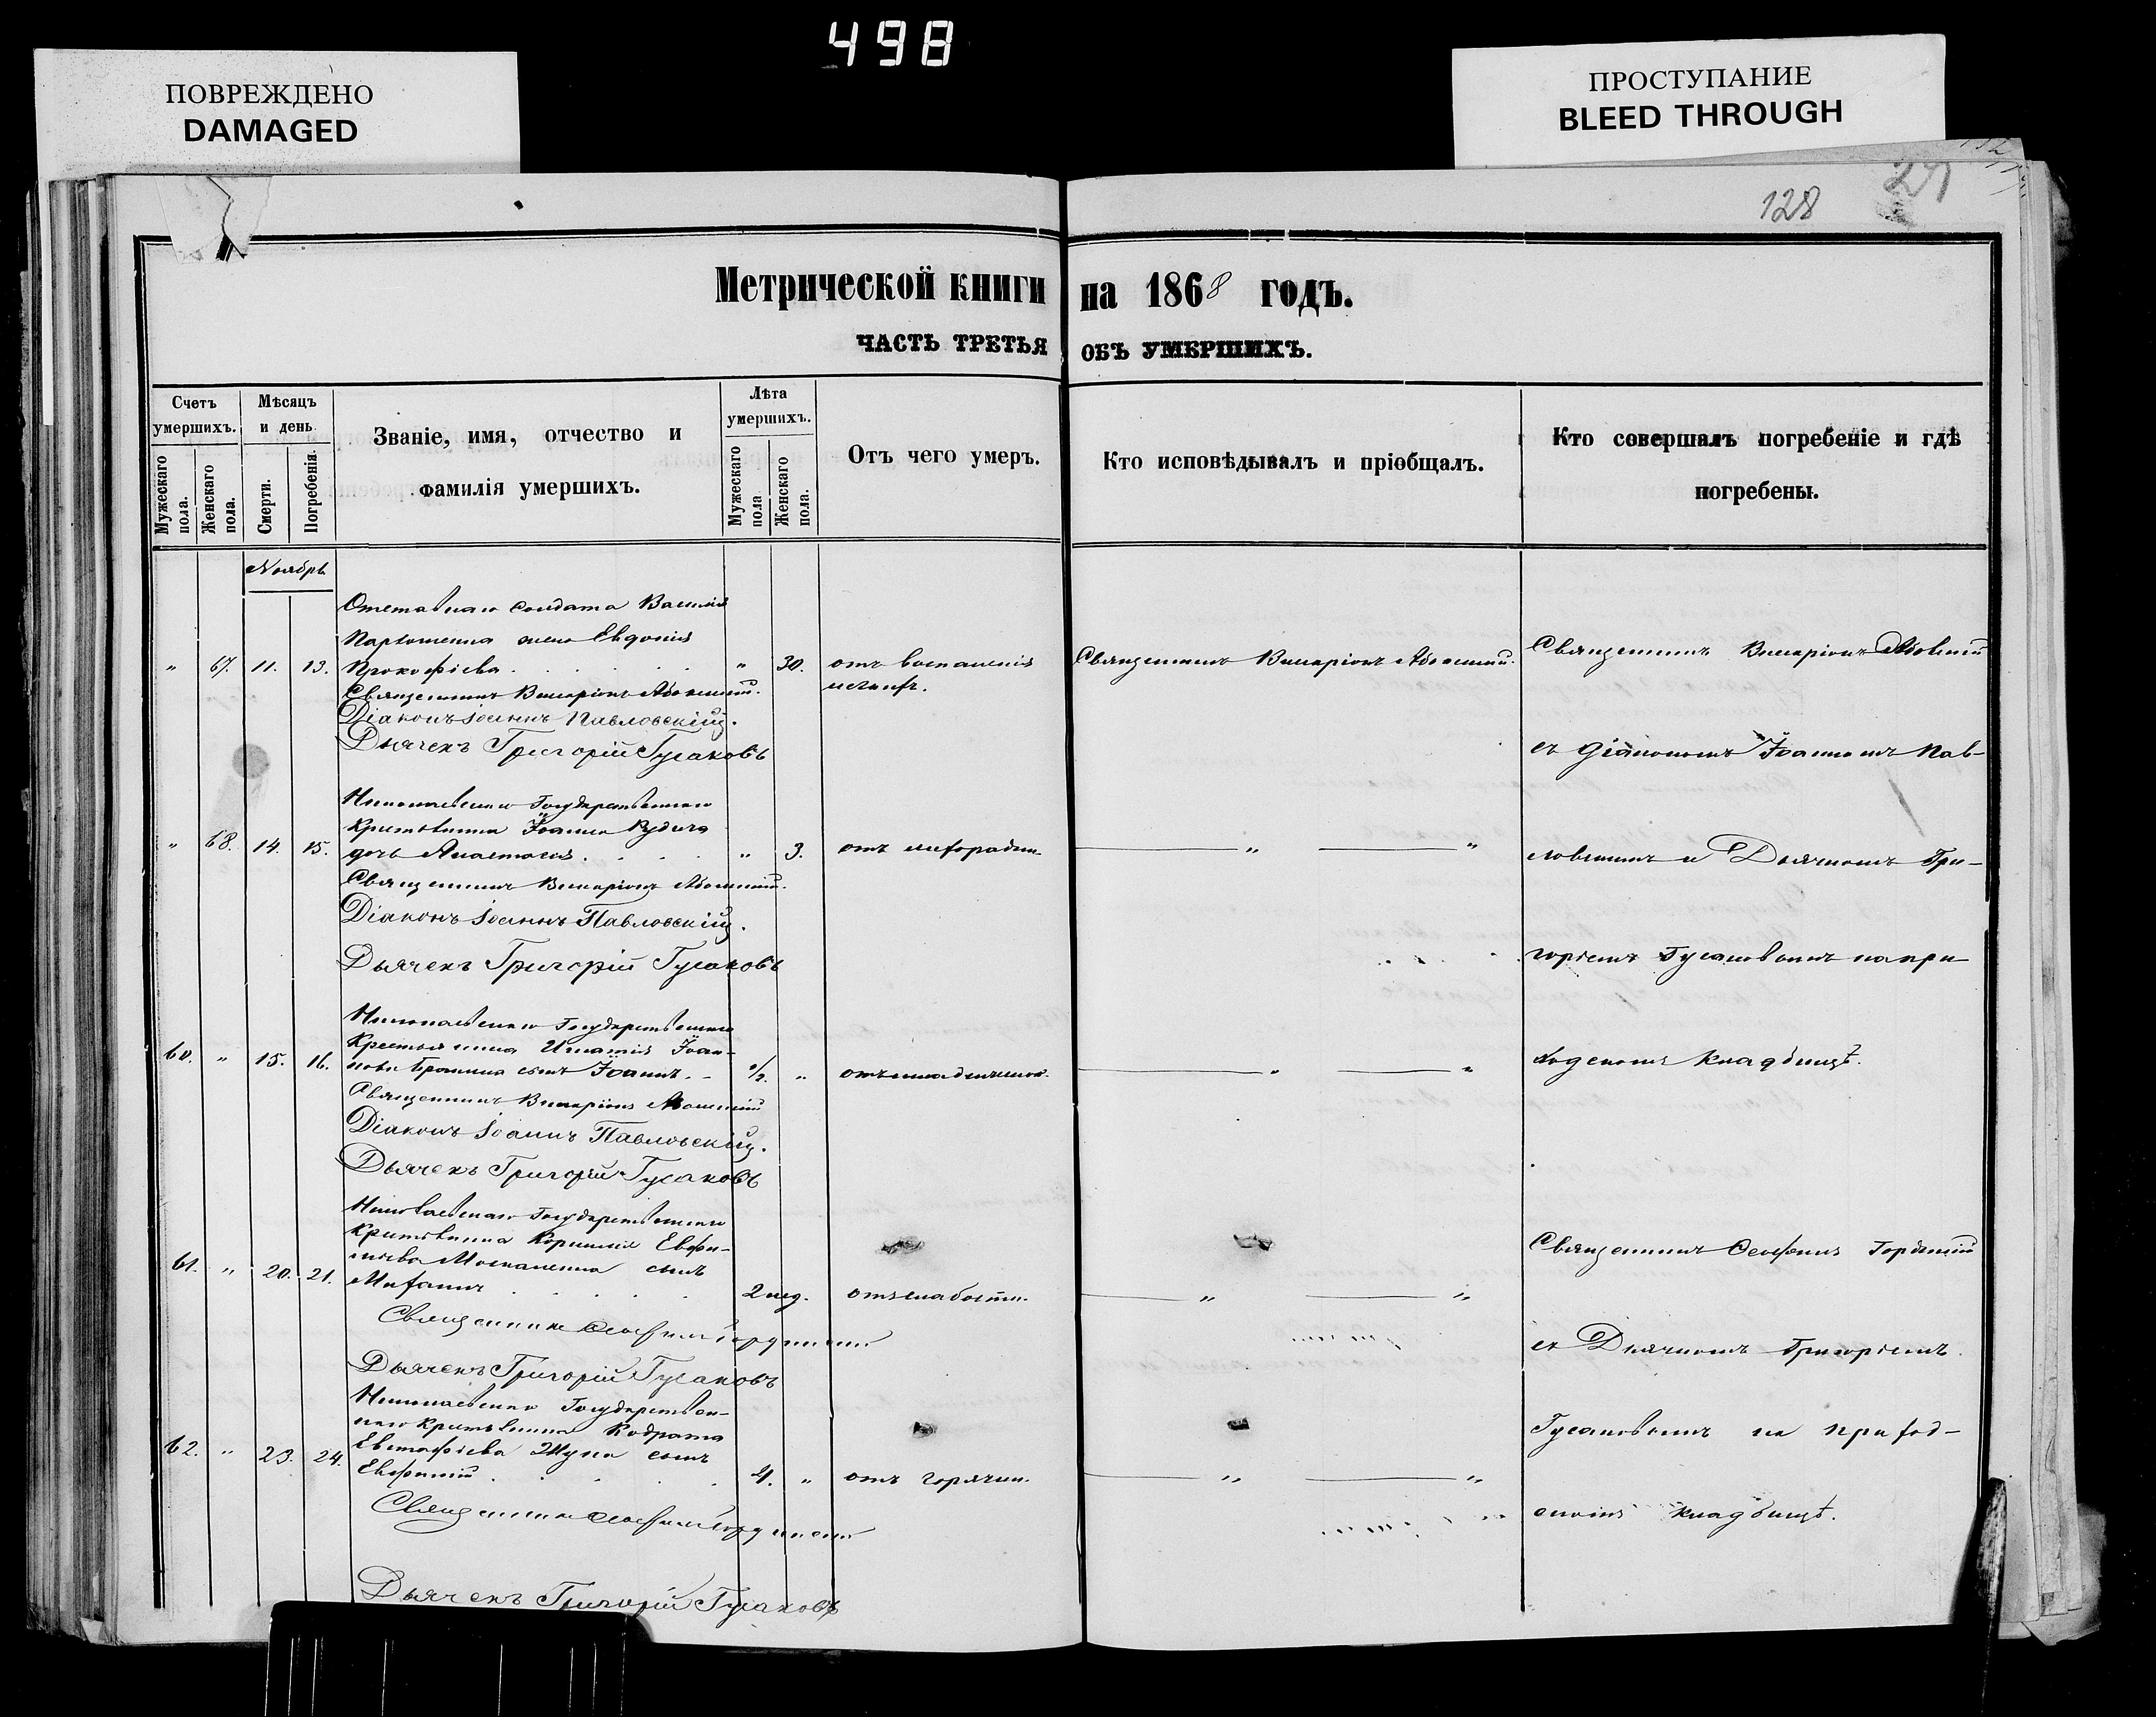 498
ПОВРЕЖДЕНО
DAMAGED
ПРОСТУПАНИЕ
BLEED THROUGH
128
Метрической книги на 1868 годъ.
ЧАСТЬ ТРЕТЬЯ ОБЪ УМЕРШИХЪ.
Счетъ умершихъ.
Мужескаго пола.
Женскаго пола.
Мѣсяцъ и день
Смерти.
Погребенія.
Званіе, имя, отчество и фамилія умершихъ.
Лѣта умершихъ.
Мужескаго пола
Женскаго пола.
Отъ чего умеръ.
Кто исповѣдывалъ и пріобщалъ.
Кто совершалъ погребеніе и гдѣ погребены.
Ноябрь
Отставнаго солдата Василія
жена Евдокія
" 67. 11. 13. Прокофіева . . . . . " 30. отъ воспаленія Священникъ Виссаріонъ
Священникъ Виссаріонъ
Діаконъ Іоаннъ Павловскій.
Дьячекъ Григорій Гусаковъ
Николаевскаго Государственнаго
Крестьянина Іоанна
" 68. 14. 15. дочь Анастасія . . . . " 3. отъ лихорадки " "
Священникъ Виссаріонъ
Діаконъ Іоаннъ Павловскій.
Дьячекъ Григорій Гусаковъ
Николаевскаго Государственнаго
Крестьянина Игнатія Іоан-
60. " 15. 16. нова сынъ Іоаннъ. - 1/2. " " "
Священникъ Виссаріонъ
Діаконъ Іоаннъ Павловскій.
Дьячекъ Григорій Гусаковъ
Николаевскаго Государственнаго
Крестьянина Корнилія Евфи-
міева Москаленка сынъ
61. " 20. 21. Михаилъ . . . . . 2 нед. отъ слабости. " "
Священникъ
Дьячекъ Григорій Гусаковъ
Николаевскаго Государствен-
наго Крестьянина Кодрата
62. " 23. 24. Евстафіева Жука сынъ
Евфимій . . . . . 4. " отъ горячки. " "
Священникъ
Дьячекъ Григорій Гусаковъ
Священникъ Виссаріонъ
съ діакономъ Іоанномъ Пав-
ловскимъ и Дьячкомъ Гри-
горіемъ Гусаковымъ на при
ходскомъ кладбищѣ.
Священникъ
съ Дьячкомъ Григоріемъ
Гусаковымъ на приход-
скомъ кладбищѣ.